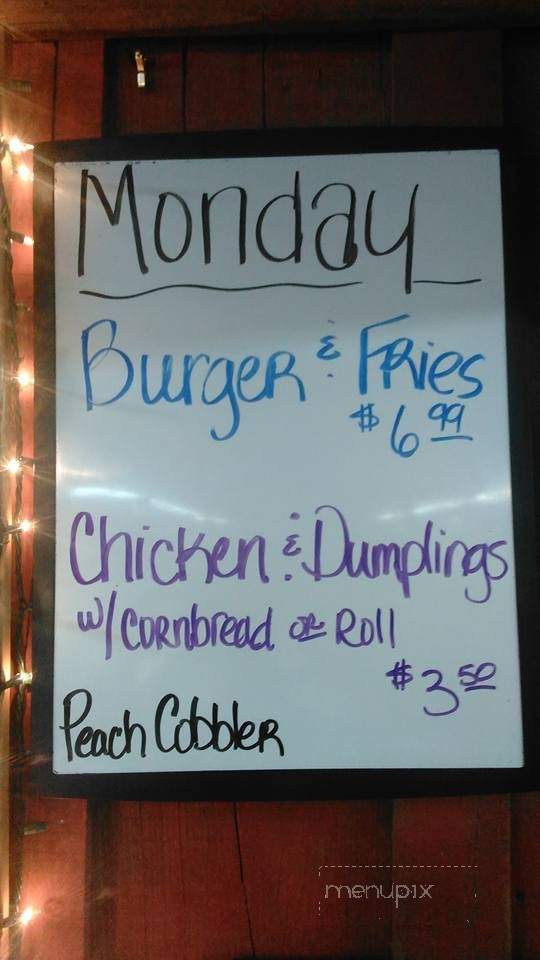 Monday
Burger & Fries
$6.99
Chicken & Dumplings
w/ Cornbread or Roll
$3.50
Peach Cobbler
menupix